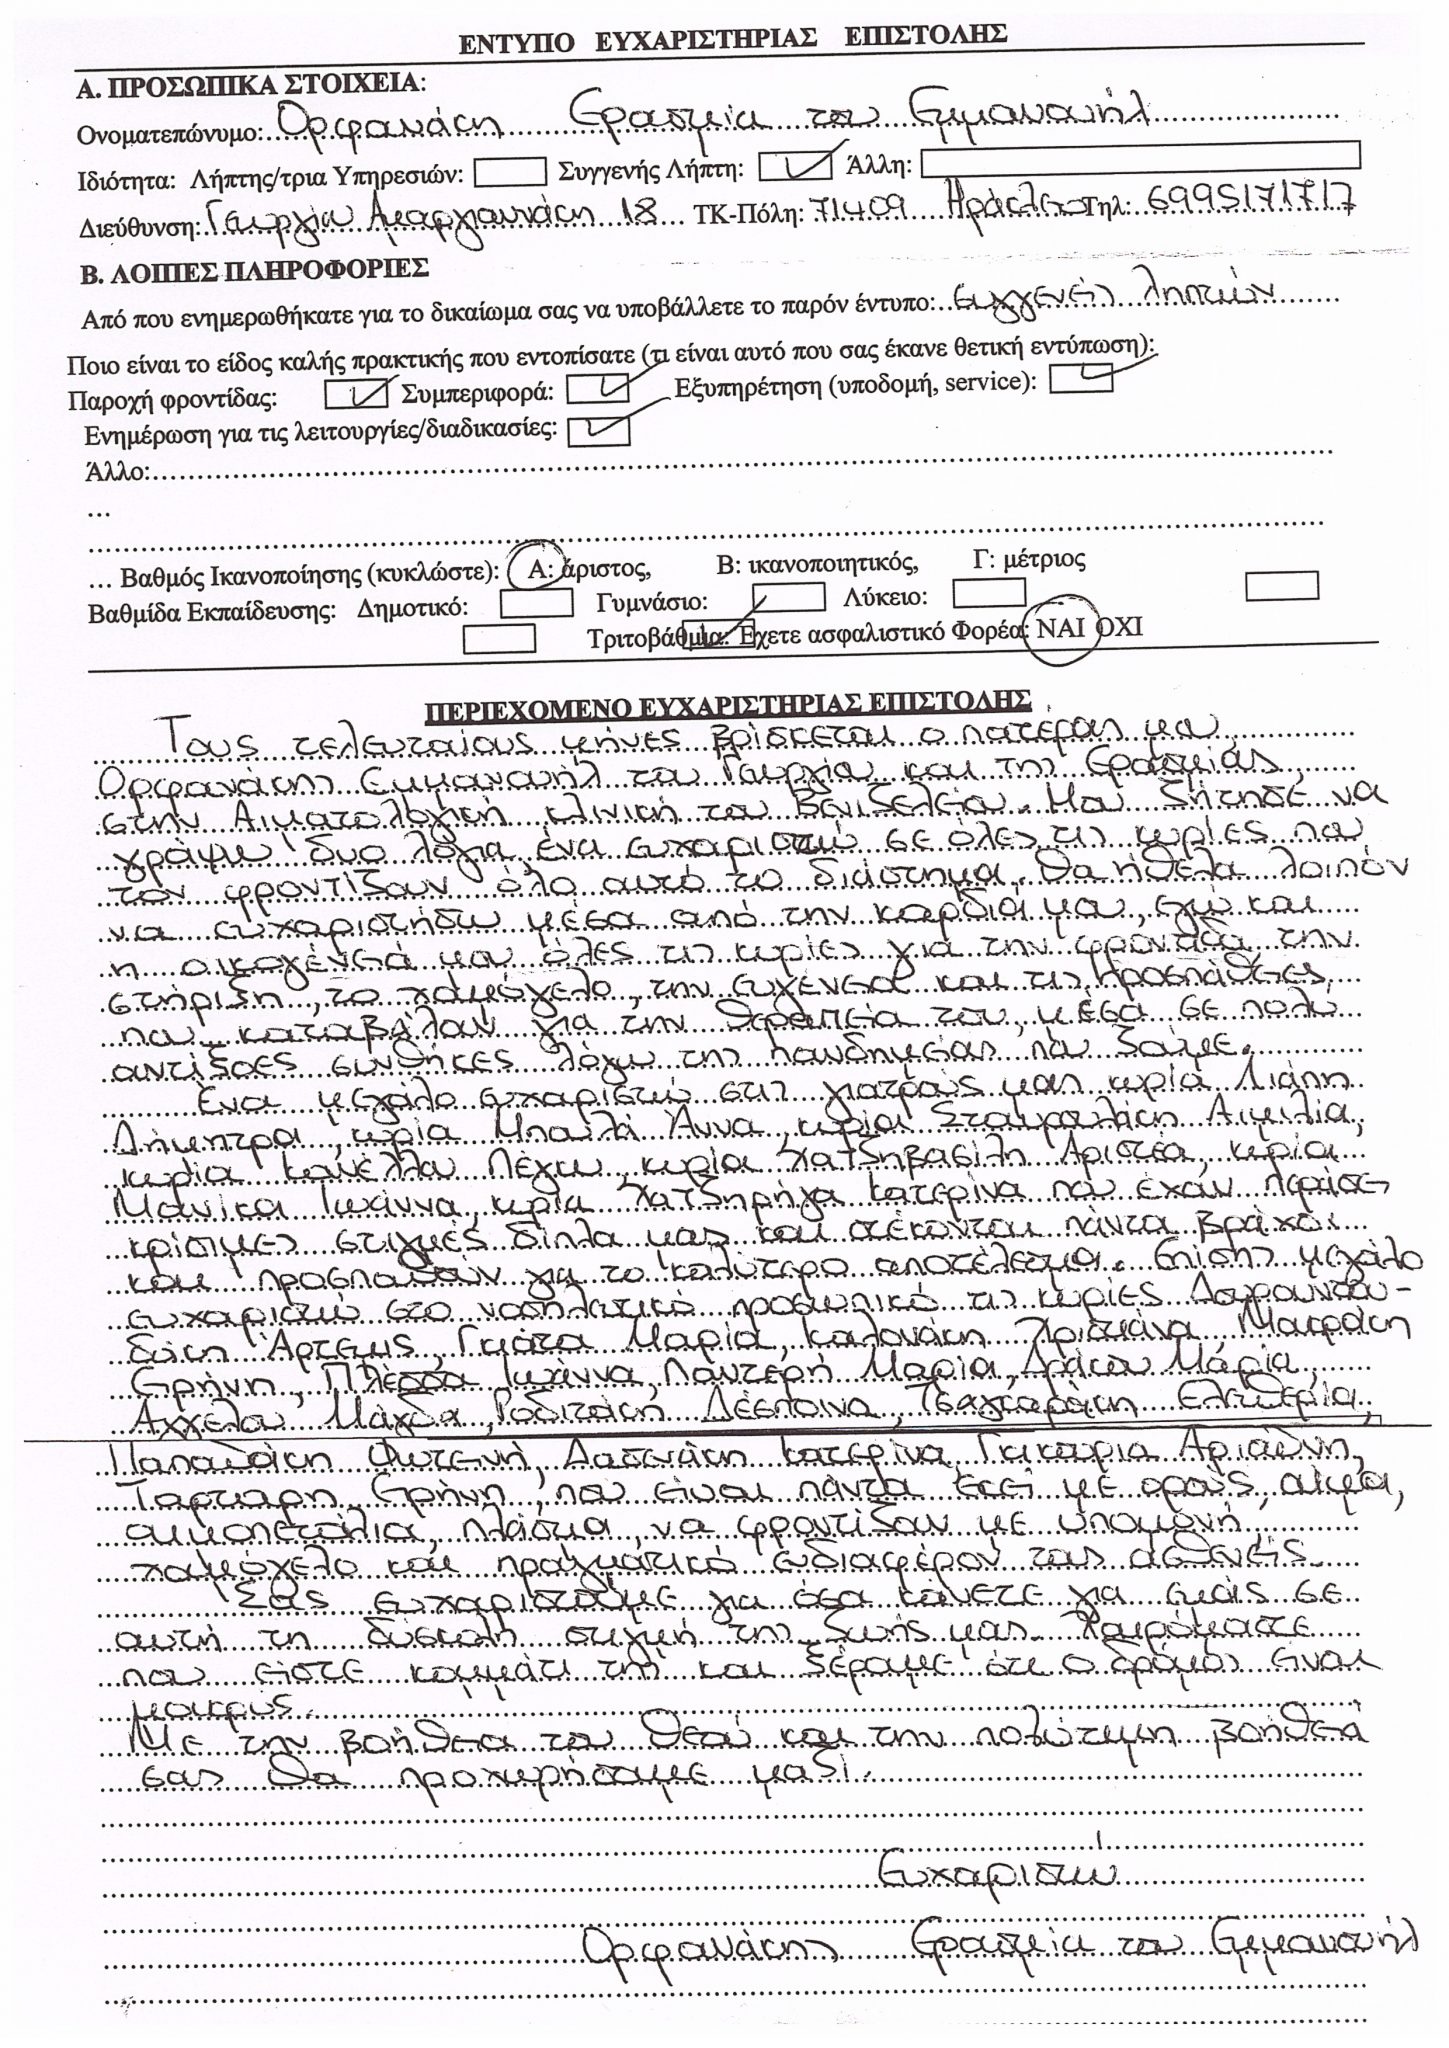 ΕΝΤΥΠΟ ΕΥΧΑΡΙΣΤΗΡΙΑΣ ΕΠΙΣΤΟΛΗΣ
Α. ΠΡΟΣΩΠΙΚΑ ΣΤΟΙΧΕΙΑ:
Ονοματεπώνυμο: Ορφανάκη Ερασμία του Εμμανουήλ
Ιδιότητα: Λήπτης/τρια Υπηρεσιών: Συγγενής Λήπτη: Άλλη:
Διεύθυνση: Γεωργίου 18 ΤΚ-Πόλη: 71409 Ηράκλειο Τηλ: 6995171717
Β. ΛΟΙΠΕΣ ΠΛΗΡΟΦΟΡΙΕΣ
Από που ενημερωθήκατε για το δικαίωμα σας να υποβάλλετε το παρόν έντυπο: συγγενείς ληπτών
Ποιο είναι το είδος καλής πρακτικής που εντοπίσατε (τι είναι αυτό που σας έκανε θετική εντύπωση):
Παροχή φροντίδας: Συμπεριφορά: Εξυπηρέτηση (υποδομή, service):
Ενημέρωση για τις λειτουργίες/διαδικασίες:
Άλλο:
...
... Βαθμός Ικανοποίησης (κυκλώστε): Α: άριστος, Β: ικανοποιητικός, Γ: μέτριος
Βαθμίδα Εκπαίδευσης: Δημοτικό: Γυμνάσιο: Λύκειο:
Τριτοβάθμια: Έχετε ασφαλιστικό Φορέα: ΝΑΙ ΟΧΙ
ΠΕΡΙΕΧΟΜΕΝΟ ΕΥΧΑΡΙΣΤΗΡΙΑΣ ΕΠΙΣΤΟΛΗΣ
Τους τελευταίους μήνες βρίσκεται ο πατέρας μου,
Ορφανάκης Εμμανουήλ του Γεωργίου και της Ερασμίας,
στην Αιματολογική κλινική του Βενιζελείου. Μου ζήτησε να
γράψω δυο λόγια, ένα ευχαριστώ σε όλες τις κυρίες που
τον φροντίζουν όλο αυτό το διάστημα. Θα ήθελα λοιπόν
να ευχαριστήσω μέσα από την καρδιά μου, εγώ και
η οικογένειά μου όλες τις κυρίες για την φροντίδα, την
στήριξη, το χαμόγελο, την ευγένεια και τις προσπάθειες
που καταβάλουν για την θεραπεία του, μέσα σε πολύ
αντίξοες συνθήκες λόγω της πανδημίας που ζούμε.
Ένα μεγάλο ευχαριστώ στις γιατρούς μας κυρία Λιάπη
Δήμητρα, κυρία Μπουλά Άννα, κυρία Σταυρουλάκη Αιμιλία,
κυρία Κανέλλου Πέγκυ, κυρία Χατζηβασίλη Αριστέα, κυρία
Μανίκα Ιωάννα, κυρία Χατζηρήγα Κατερίνα που έχουν περάσει
κρίσιμες στιγμές δίπλα μας και στέκονται πάντα βράχοι
και προσπαθούν για το καλύτερο αποτέλεσμα. Επίσης μεγάλο
ευχαριστώ στο νοσηλευτικό προσωπικό τις κυρίες
Άρτεμις, Μαρία, Καλονάκη Χριστιάνα, Μακράκη
Ειρήνη, Ιωάννα, Παντερή Μαρία, Δράκου Μαρία,
Αγγέλου Μάγδα, Ροδιτάκη Δέσποινα, Τσαγκαράκη Ελευθερία,
Παπαδάκη Φωτεινή, Δασενάκη Κατερίνα, Αριάδνη,
Ειρήνη, που είναι πάντα εκεί με ορούς, αίμα,
αιμοπετάλια, πλάσμα, να φροντίζουν με υπομονή,
χαμόγελο και πραγματικό ενδιαφέρον τους ασθενείς.
Σας ευχαριστούμε για όσα κάνετε για εμάς σε
αυτή τη δύσκολη στιγμή της ζωής μας. Χαιρόμαστε
που είστε κομμάτι της και ξέρουμε ότι ο δρόμος είναι
μακρύς.
Με την βοήθεια του Θεού και την πολύτιμη βοήθειά
σας θα προχωρήσουμε μαζί.
Ευχαριστώ
Ορφανάκη Ερασμία του Εμμανουήλ